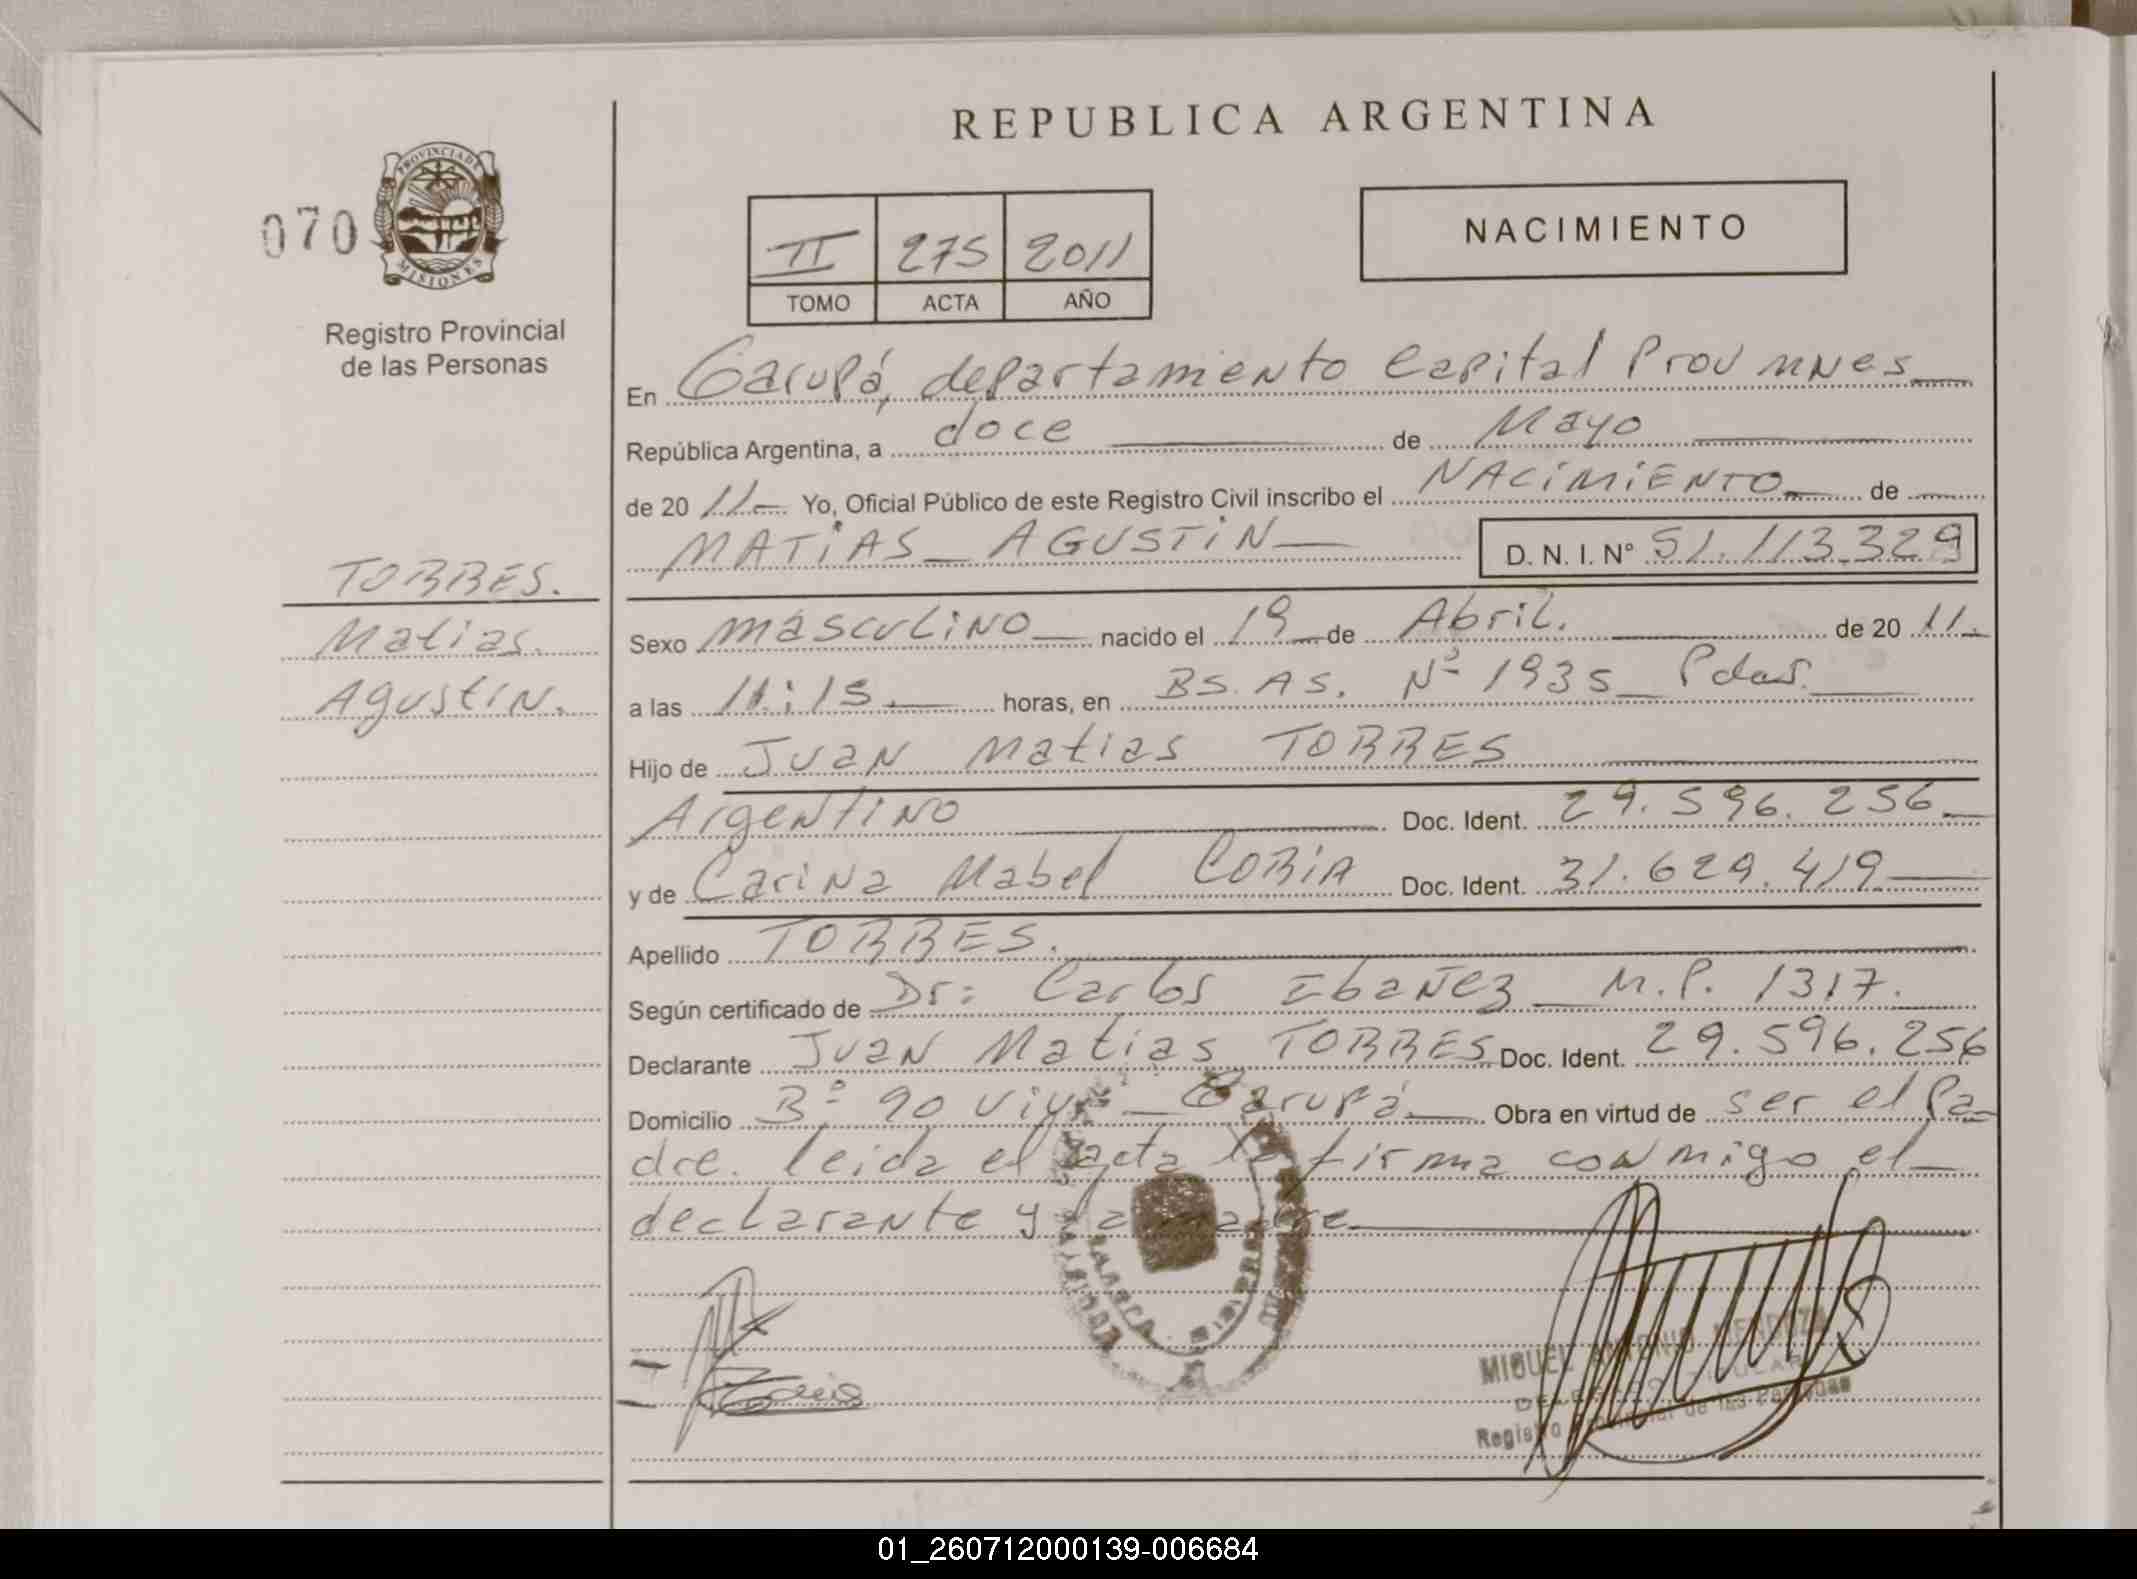 REPUBLICA ARGENTINA
PROVINCIA DE
MISIONES
070
Registro Provincial
de las Personas
II 275 2011
TOMO ACTA AÑO
NACIMIENTO
En Garupá, departamento Capital Prov mnes
República Argentina, a doce de Mayo
de 2011 Yo, Oficial Público de este Registro Civil inscribo el NACIMIENTO de
MATIAS AGUSTIN D. N. I. N° 51.113.329
TORRES.
Matias.
Agustin.
Sexo masculino nacido el 19 de Abril. de 2011.
a las 11:15 horas, en BS. AS. Nº 1935 Pdas.
Hijo de Juan Matias TORRES
Argentino Doc. Ident. 29.596.256
y de Carina Mabel CORIA Doc. Ident. 31.629.419
Apellido TORRES.
Según certificado de Dr: Carlos Ibañez M.P. 1317.
Declarante Juan Matias TORRES Doc. Ident. 29.596.256
Domicilio Bº 90 viv. Garupá Obra en virtud de ser el Pa-
dre. leida el acta la firma conmigo el
declarante y la madre
MIGUEL ANTONIO MENDOZA
DELEGADO TITULAR
Registro Provincial de las Personas
01_260712000139-006684